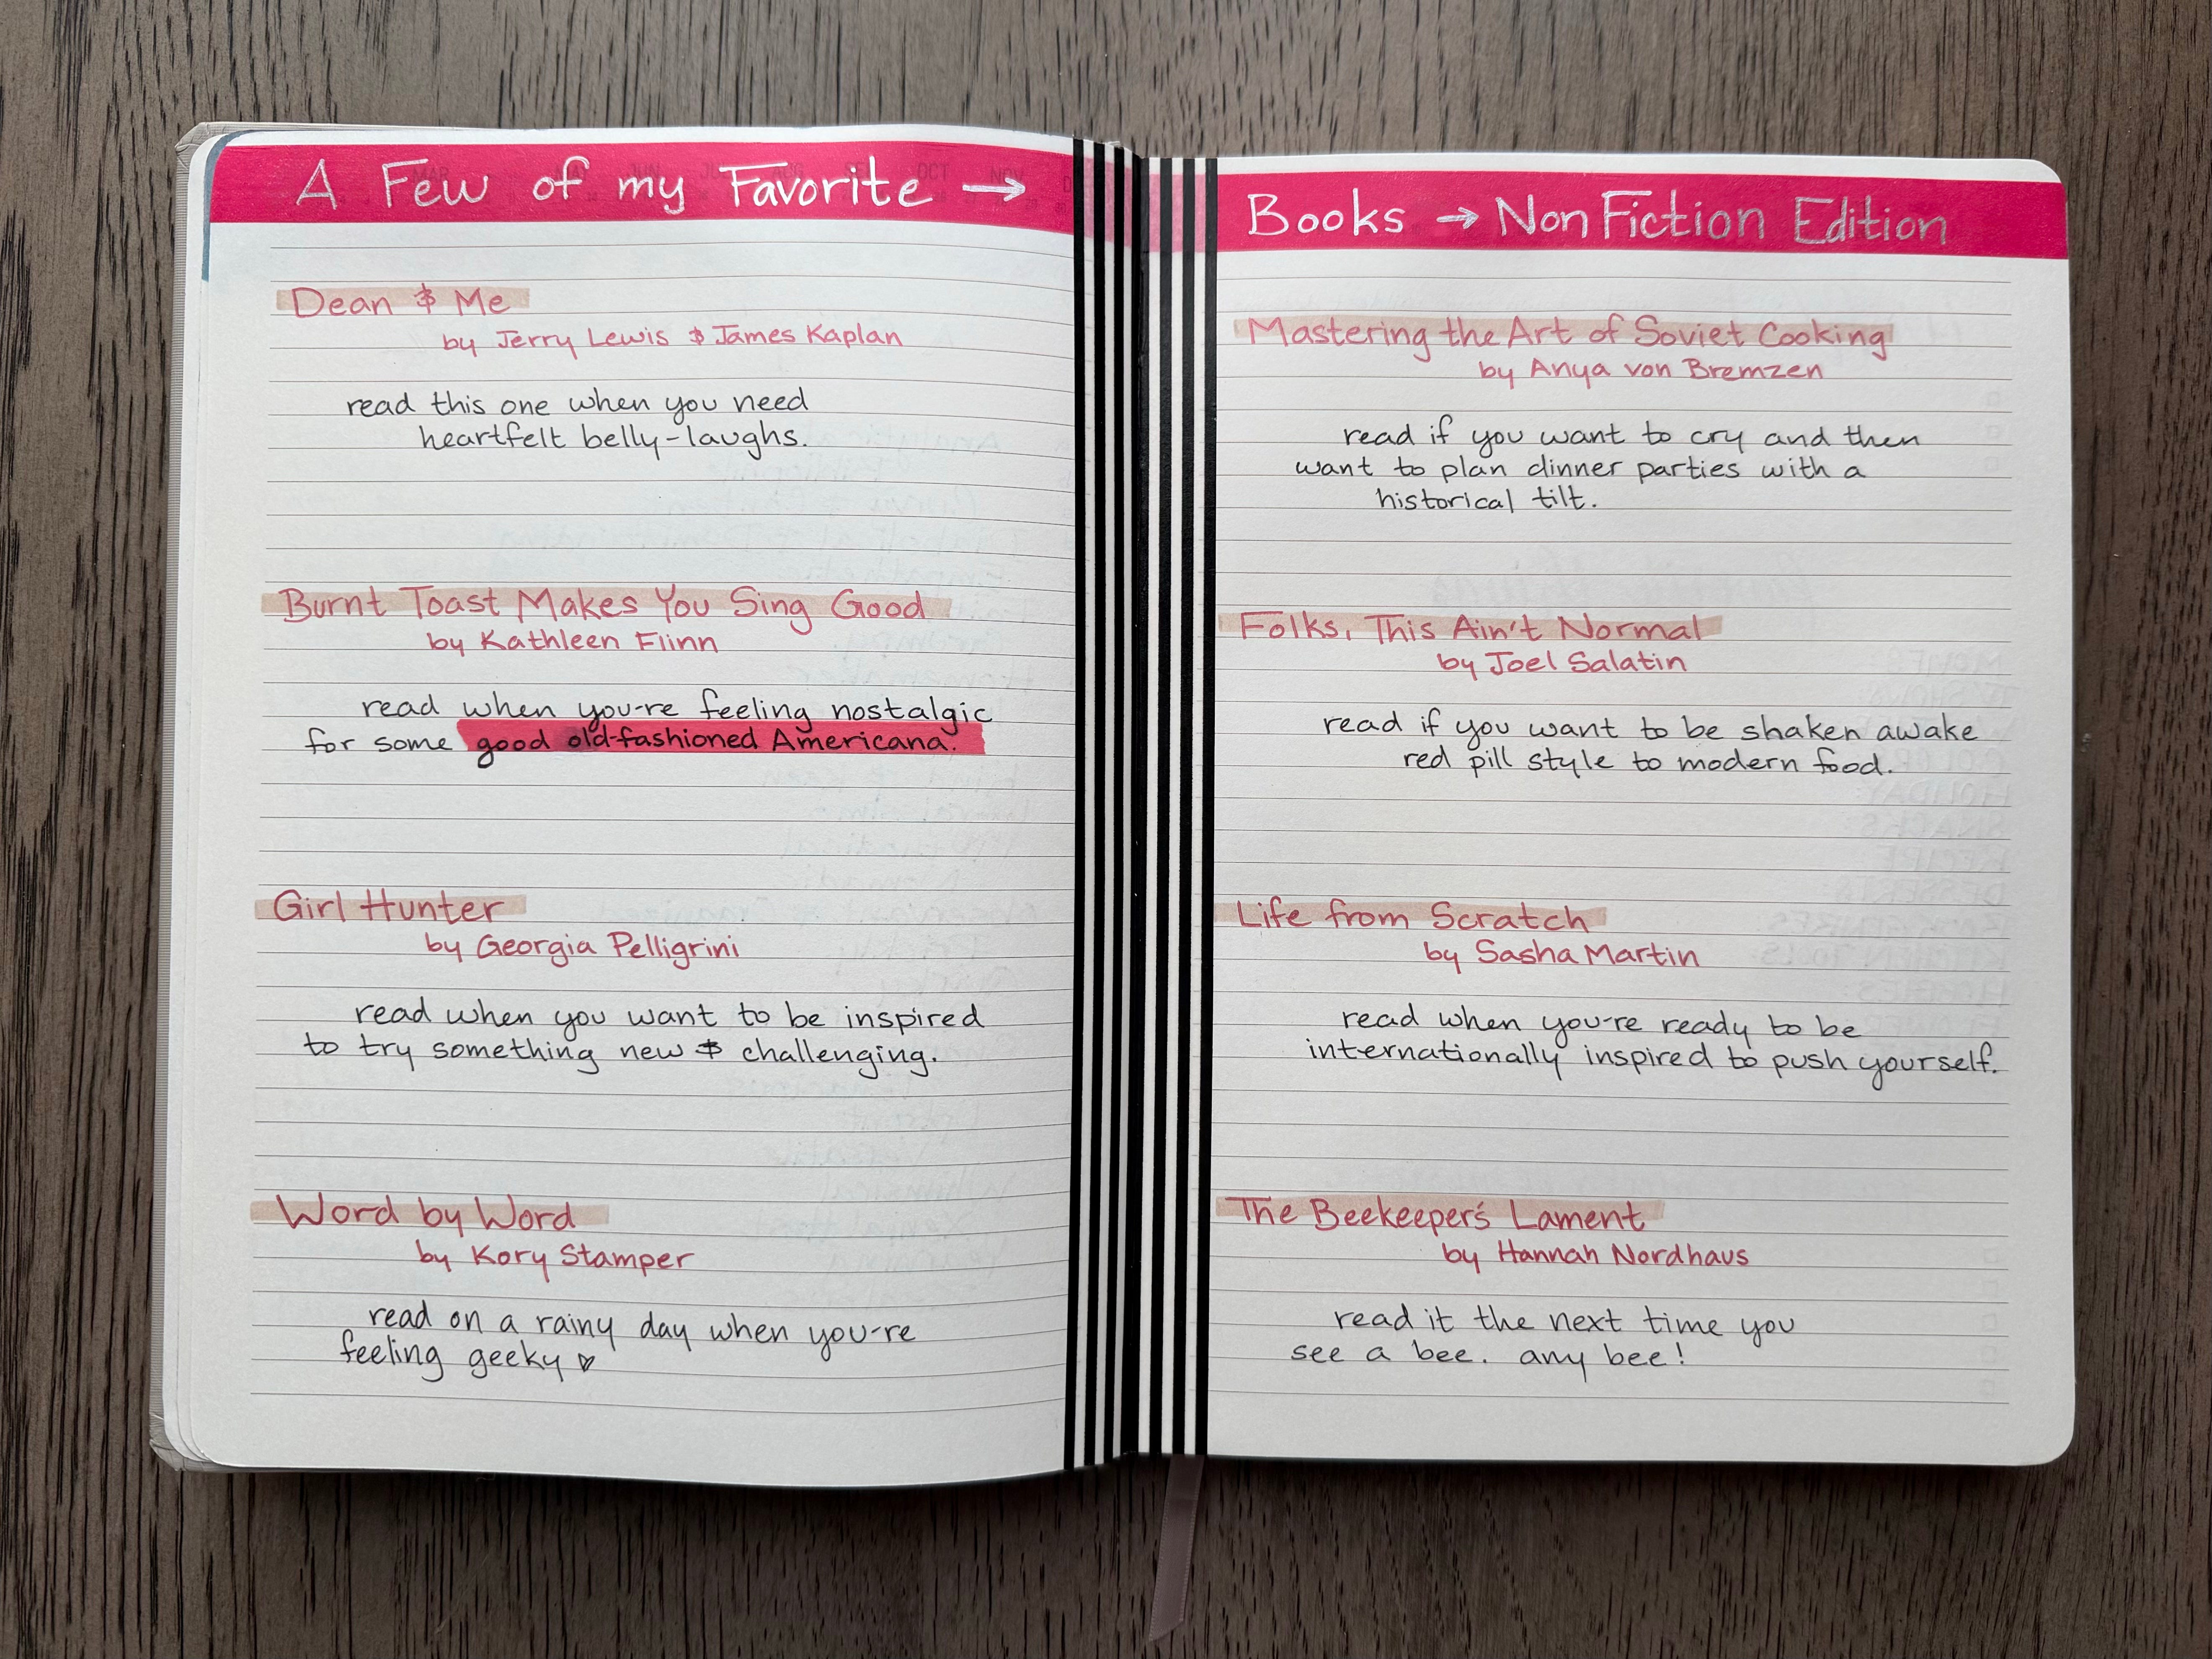 A Few of my Favorite →
Dean & Me
by Jerry Lewis & James Kaplan
read this one when you need
heartfelt belly-laughs.
Burnt Toast Makes You Sing Good
by Kathleen Flinn
read when you're feeling nostalgic
for some good old-fashioned Americana.
Girl Hunter
by Georgia Pelligrini
read when you want to be inspired
to try something new & challenging.
Word by Word
by Kory Stamper
read on a rainy day when you're
feeling geeky ♡
Books → Non Fiction Edition
Mastering the Art of Soviet Cooking
by Anya von Bremzen
read if you want to cry and then
want to plan dinner parties with a
historical tilt.
Folks, This Ain't Normal
by Joel Salatin
read if you want to be shaken awake
red pill style to modern food.
Life from Scratch
by Sasha Martin
read when you're ready to be
internationally inspired to push yourself.
The Beekeeper's Lament
by Hannah Nordhaus
read it the next time you
see a bee. any bee!